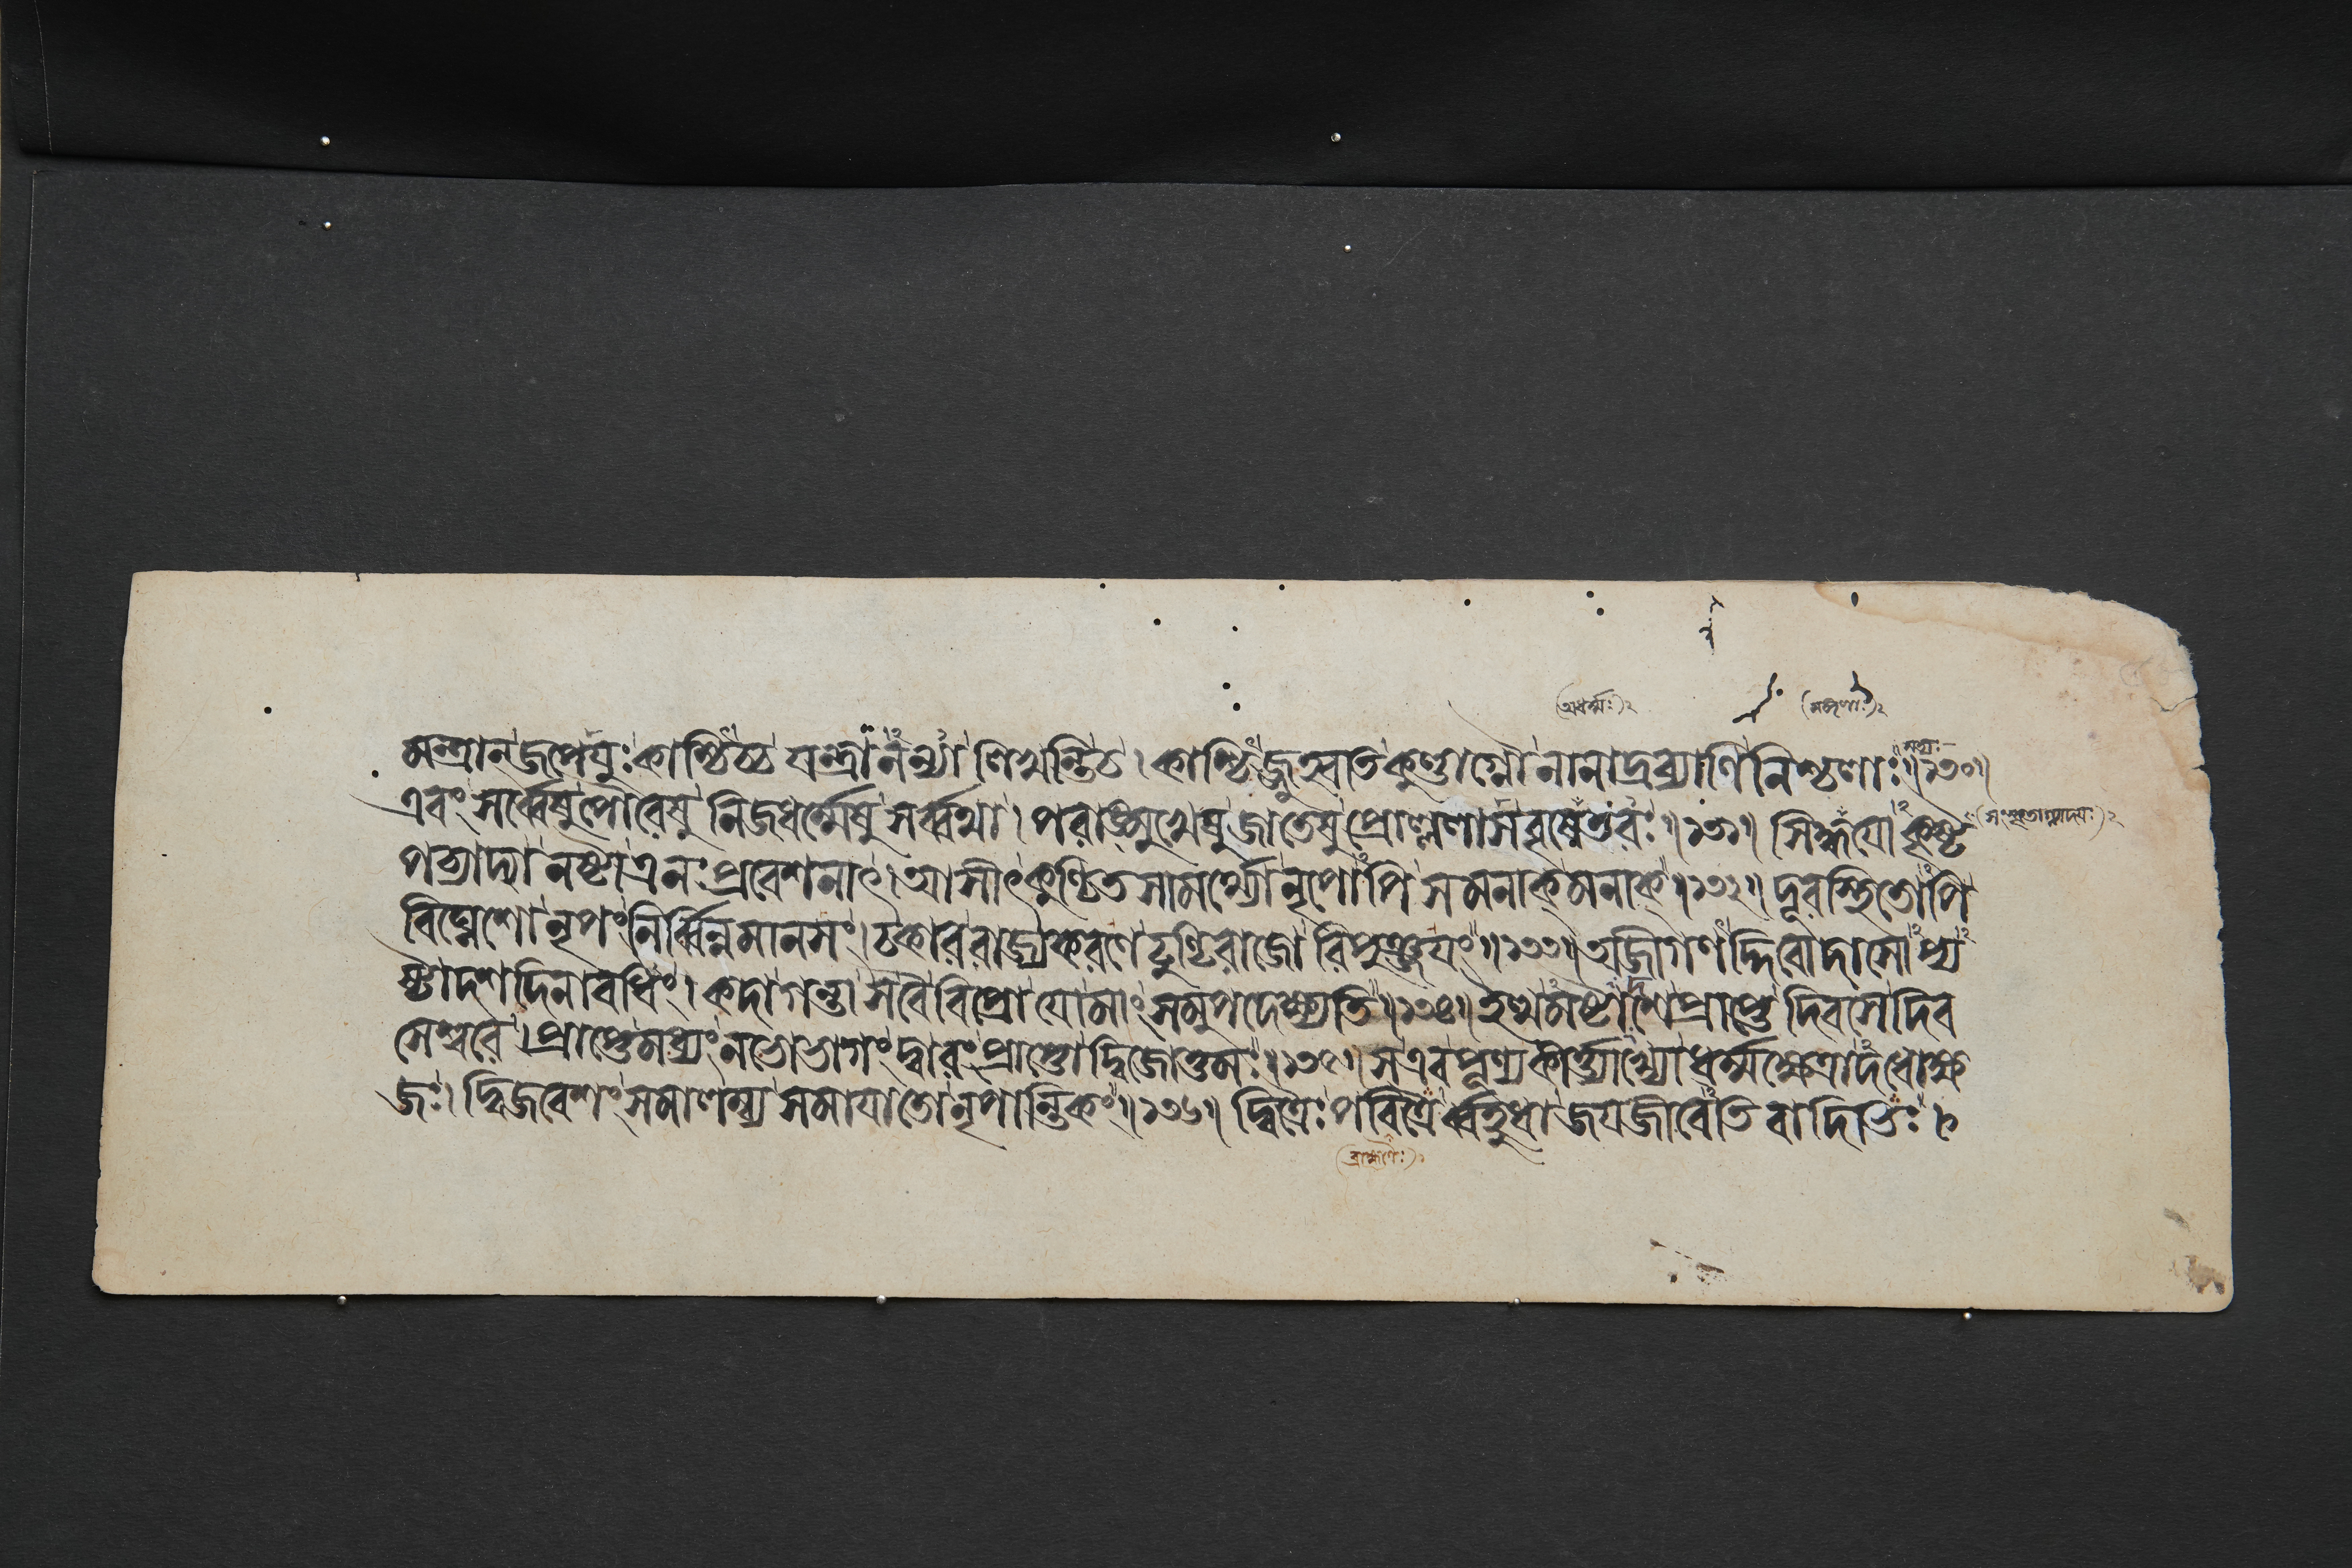 (অধর্ম্মঃ)২
মন্ত্রান্ জপেযুঃ কাশ্চিচ্চ যন্ত্রানন্যা লিখন্তি চ। কাশ্চিজ্জুহ্বতি কুণ্ডাগ্নৌ নানাদ্রব্যাণি নিশ্চলাঃ॥১৩০॥
এবং সর্ব্বেষু পৌরেষু নিজধর্ম্মেষু সর্ব্বথা। পরাঙ্মুখেষু জাতেষু প্রোল্ললাস বৃষেতরঃ॥১৩১॥ সিদ্ধযো কৃষ্ট
পচ্যাদ্যা নষ্টা এনঃ প্রবেশনাৎ। আসীৎকুণ্ঠিতসামর্থ্যো নৃপোপি স মনাক্ মনাক্॥১৩২॥ দূরস্থিতোপি
বিঘ্নেশো নৃপং নির্ব্বিন্নমানসং। চকার রাজ্যকরণে ঢুণ্ঢিরাজো রিপুঞ্জযং॥১৩৩॥ অজীগণদ্দিবোদাসোপ্য
ষ্টাদশদিনাবধিং। কদা গন্তা স বৈ বিপ্রো যো মাং সমুপদেক্ষ্যতি॥১৩৪॥ ইত্থমষ্টাদশে প্রাপ্তে দিবসে দিব
সেশ্বরে। প্রাপ্তে মধ্যং নভোভাগং দ্বারং প্রাপ্তো দ্বিজোত্তমঃ॥১৩৫॥ স এব পুণ্যকীর্ত্যাখ্যো ধর্ম্মক্ষেত্রাদধোক্ষ
জঃ। দ্বিজবেশং সমালম্ব্য সমাযাতো নৃপান্তিকং॥১৩৬॥ দ্বিত্রৈঃ পবিত্রৈশ্চতুর্ধা জযজীবেতি বাদিভিঃ।
(ব্রাহ্মণৈঃ)